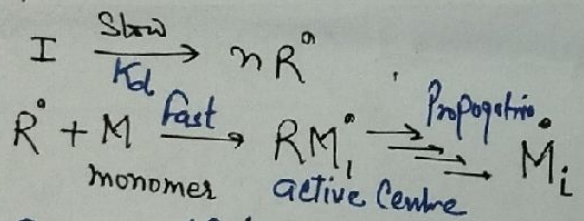 I Slow Kd → nR°
R° + M fast → RM₁° Propogation → Ṁi
monomer active Centre